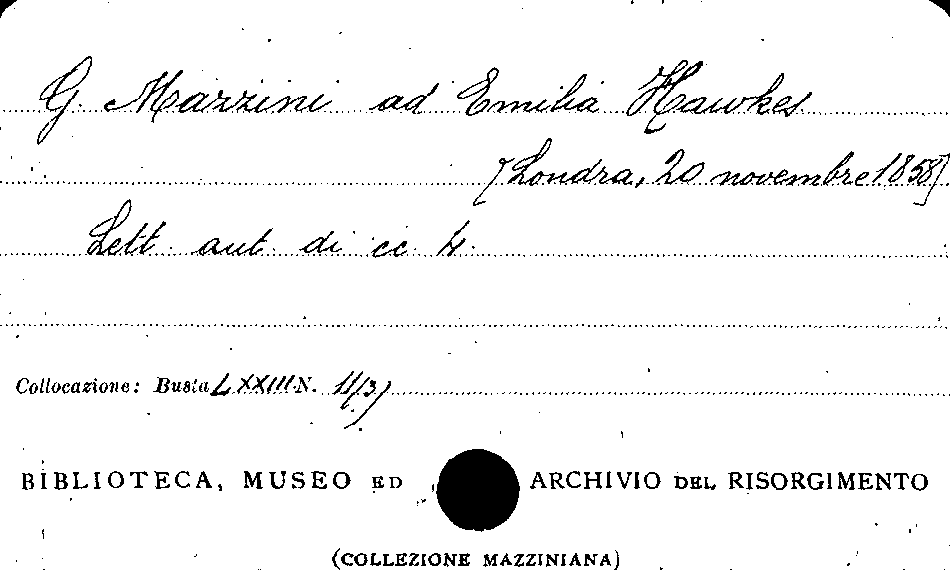 G. Mazzini ad Emilia Hawkes
[Londra, 20 novembre 1858]
Lett. aut. di cc. 4.
Collocazione: Busta LXXIII N. 11/3)
BIBLIOTECA, MUSEO ED ARCHIVIO DEL RISORGIMENTO
(COLLEZIONE MAZZINIANA)